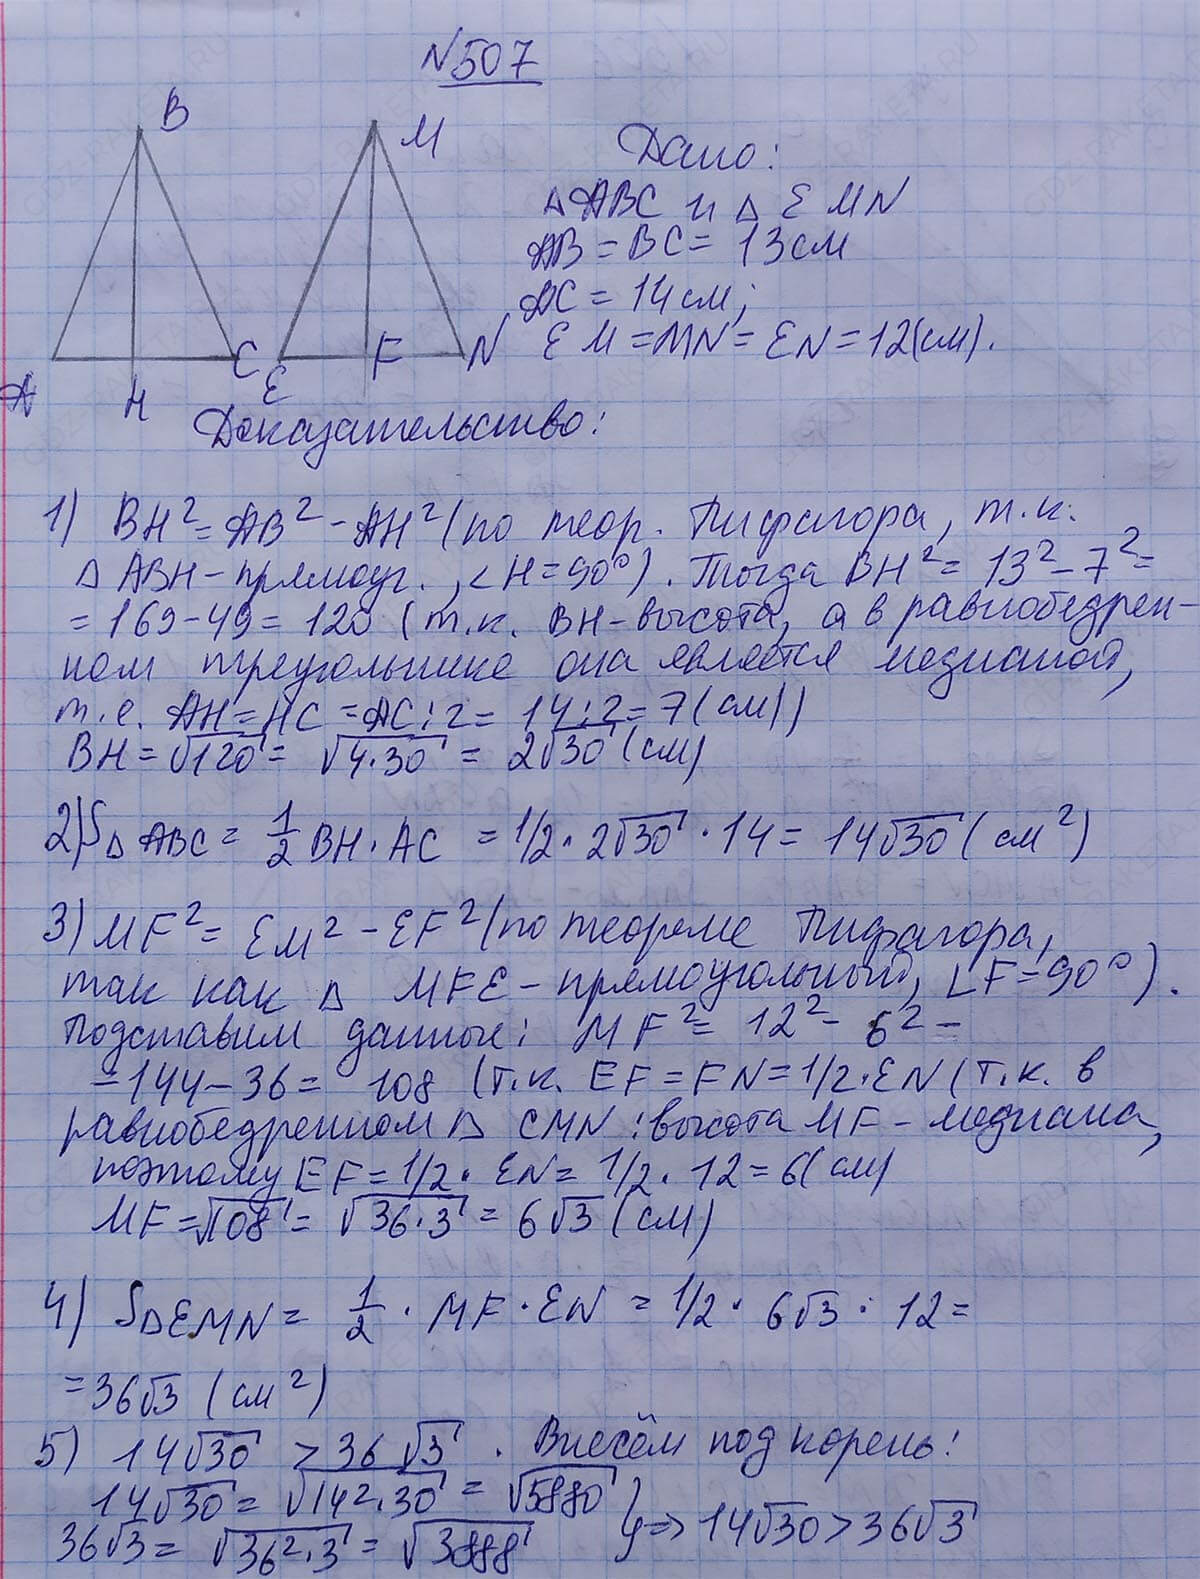 N507
B
M
Дано:
△ ABC и △ EMN
AB = BC = 13 см
AC = 14 см;
EM = MN = EN = 12(см).
A
H
C
E
F
N
Доказательство:
1) BH² = AB² - AH² (по теор. Пифагора, т.к.
△ ABH - прямоуг., ∠H = 90°). Тогда BH² = 13² - 7² =
= 169 - 49 = 120 (т.к. BH - высота, а в равнобедрен-
ном треугольнике она является медианой,
т.е. AH = HC = AC : 2 = 14 : 2 = 7 (см))
BH = √120 = √4·30 = 2√30 (см)
2) S△ ABC = 1/2 BH · AC = 1/2 · 2√30 · 14 = 14√30 (см²)
3) MF² = EM² - EF² (по теореме Пифагора,
так как △ MFE - прямоугольный, ∠F = 90°).
Подставим данные: MF² = 12² - 6² =
= 144 - 36 = 108 (т.к. EF = FN = 1/2 · EN (т.к. в
равнобедренном △ CMN : высота MF - медиана,
поэтому EF = 1/2 · EN = 1/2 · 12 = 6 (см)
MF = √108 = √36·3 = 6√3 (см)
4) S△EMN = 1/2 · MF · EN = 1/2 · 6√3 · 12 =
= 36√3 (см²)
5) 14√30 > 36√3. Внесём под корень!
14√30 = √14²·30 = √5880
36√3 = √36²·3 = √3888 } => 14√30 > 36√3